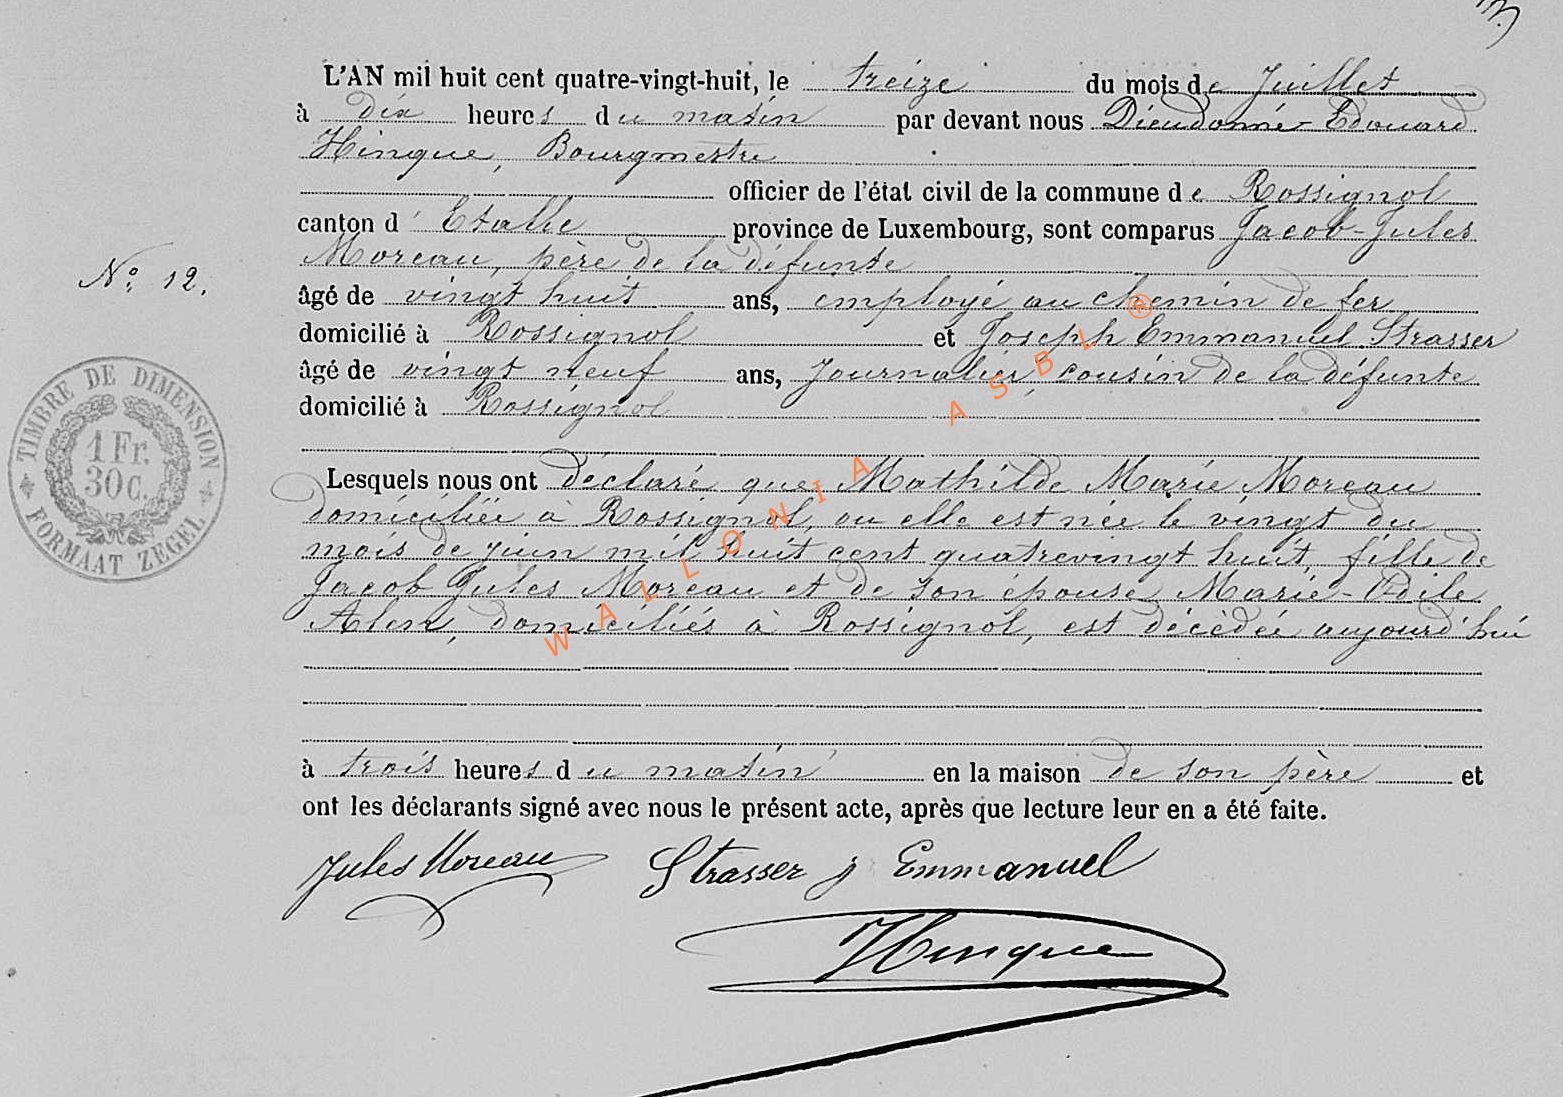 L'AN mil huit cent quatre-vingt-huit, le treize du mois de Juillet
à dix heures du matin par devant nous Dieudonné Edouard
Hinque, Bourgmestre
officier de l'état civil de la commune de Rossignol
canton d'Etalle province de Luxembourg, sont comparus Jacob-Jules
Moreau, père de la défunte
N° 12.
âgé de vingt huit ans, employé au chemin de fer
domicilié à Rossignol et Joseph Emmanuel Strasser
âgé de vingt neuf ans, Journalier, cousin de la défunte
domicilié à Rossignol
TIMBRE DE DIMENSION
1 Fr.
30 C.
FORMAAT ZEGEL
Lesquels nous ont déclaré que Mathilde Marie Moreau
domiciliée à Rossignol, ou elle est née le vingt du
mois de juin mil huit cent quatrevingt huit, fille de
Jacob Jules Moreau et de son épouse Marie-Odile
domiciliés à Rossignol, est décédée aujourd'hui
à trois heures du matin en la maison de son père et
ont les déclarants signé avec nous le présent acte, après que lecture leur en a été faite.
Jules Moreau Strasser j Emmanuel
Hinque
WALLONIA ASBL ®